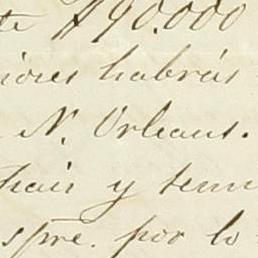 te $90.000
iores habrás
N. Orleans.
hair y tem
spre. por lo